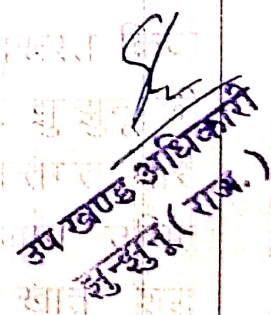 उप खण्ड अधिकारी
झुन्झुनू (राज.)